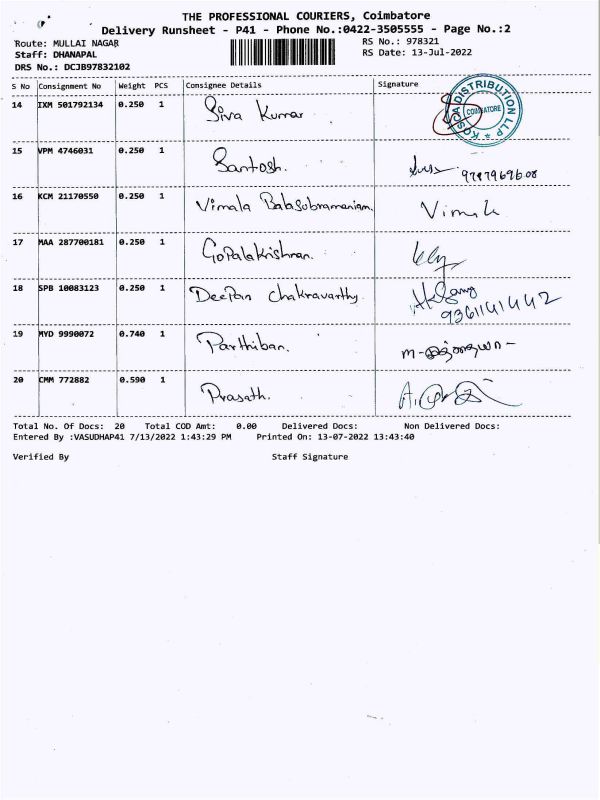 THE PROFESSIONAL COURIERS, Coimbatore
Delivery Runsheet - P41 - Phone No.:0422-3505555 - Page No.:2
Route: MULLAI NAGAR
RS No.: 978321
Staff: DHANAPAL
RS Date: 13-Jul-2022
DRS No.: DCJB97832102
S No Consignment No Weight PCS Consignee Details Signature
14 IXM 501792134 0.250 1 Siva Kumar
DISTRIBUTION LLP COIMBATORE
15 VPM 4746031 0.250 1 Santosh.
9787969608
16 KCM 21170550 0.250 1 Vimala Balasubramaniam. Vimala
17 MAA 287700181 0.250 1 Gopalakrishnan.
18 SPB 10083123 0.250 1 Deepan Chakravarthy.
9361141442
19 MYD 9990072 0.740 1 Parthiban.
20 CMM 772882 0.590 1 Prasath.
Total No. Of Docs: 20 Total COD Amt: 0.00 Delivered Docs: Non Delivered Docs:
Entered By :VASUDHAP41 7/13/2022 1:43:29 PM Printed On: 13-07-2022 13:43:40
Verified By Staff Signature